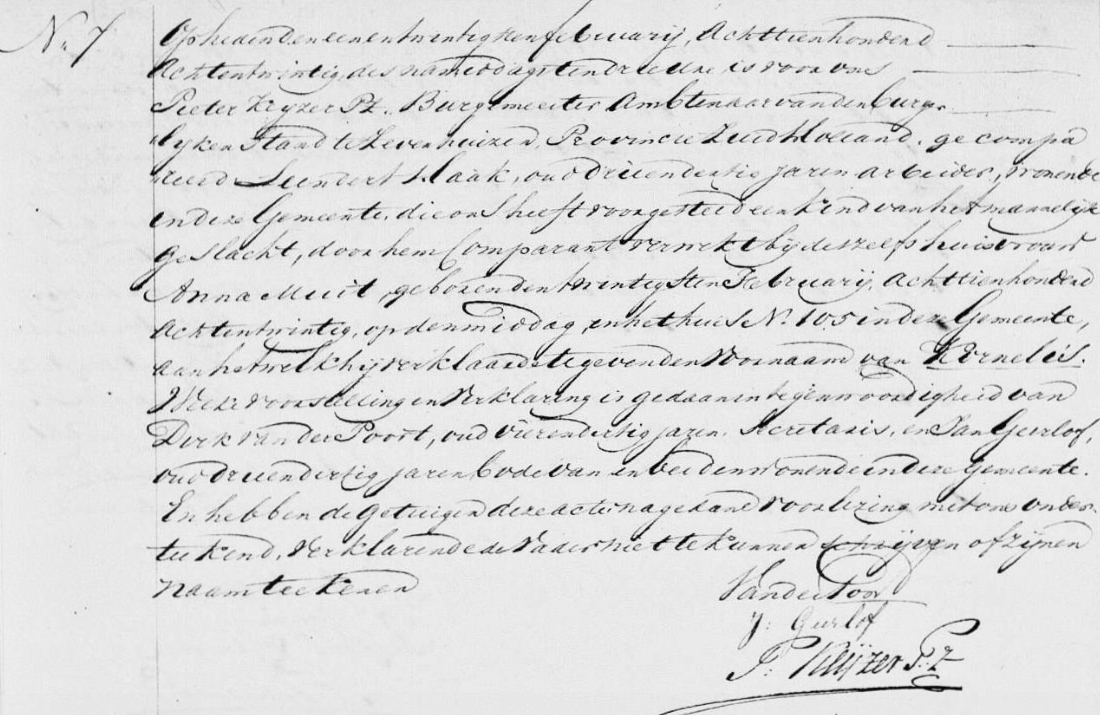 No 7
Op heden den een en twintigsten februarij, Achttienhonderd
Achtentwintig, des namiddags ten drie Ure, is voor ons
Pieter Keyzer Pz. Burgemeester Ambtenaar van den burge-
lyken Stand te Zevenhuizen, Provincie Zuid Holland, ge compa
reerd Leendert Vlaak, oud drieendertig jaren arbeider, wonende
in deze Gemeente, die ons heeft voorgesteld een kind van het mannelijk
geslacht, door hem Comparant verwekt by deszelfs huisvrouw
Anna Muit, geboren den twintigsten Februarij, Achttienhonderd
achtentwintig, op den middag, in het huis No. 105 in deze Gemeente,
aan hetwelk hij verklaarde te geven den Voornaam van Kornelis.
Welke voorstelling en Verklaring is gedaan in tegenwoordigheid van
Dirk van der Poort, oud vierendertig jaren, Secretaris, en Jan Geurlof,
oud drieendertig jaren bode van en beiden wonende in deze Gemeente.
En hebben de Getuigen deze acte na gedane Voorlezing met ons onder-
teekend, Verklarende de Vader niet te kunnen schrijven of zijnen
naam teekenen
Vander Poort
J: Geurlof
P: Keijzer P.Z